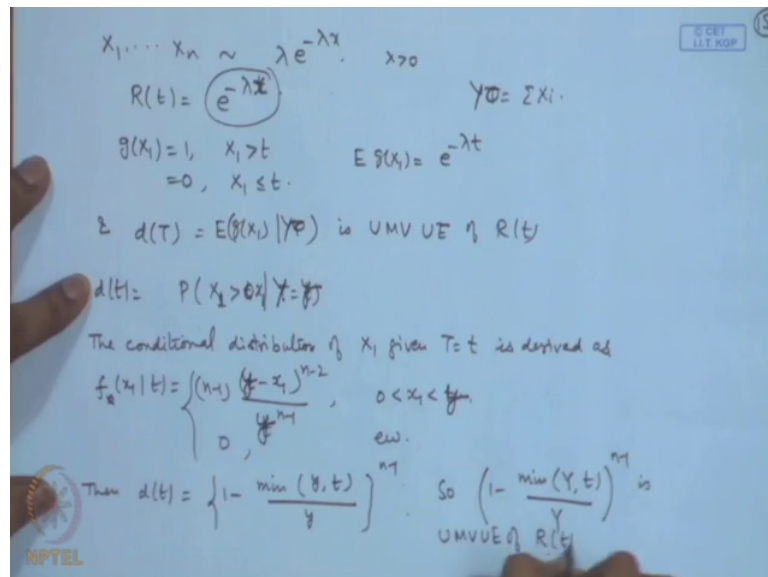 X₁, .... Xₙ ~ λe^{-λx}, x>0
© CET
I.I.T. KGP
R(t) = e^{-λt} Y = ΣXi.
g(X₁) = 1, X₁ > t E g(X₁) = e^{-λt}
= 0, X₁ ≤ t.
& d(T) = E(g(X₁) | Y) is UMVUE of R(t)
d(t) = P(X₁ > | Y = y)
The conditional distribution of X₁ given T = t is derived as
f(x₁|t) = { (n-1) (y - x₁)^{n-2} / y^{n-1}, 0 < x₁ < y.
0, ew.
Then d(t) = { 1 - min(y, t) / y }^{n-1} So (1 - min(Y, t) / Y)^{n-1} is
UMVUE of R(t
NPTEL